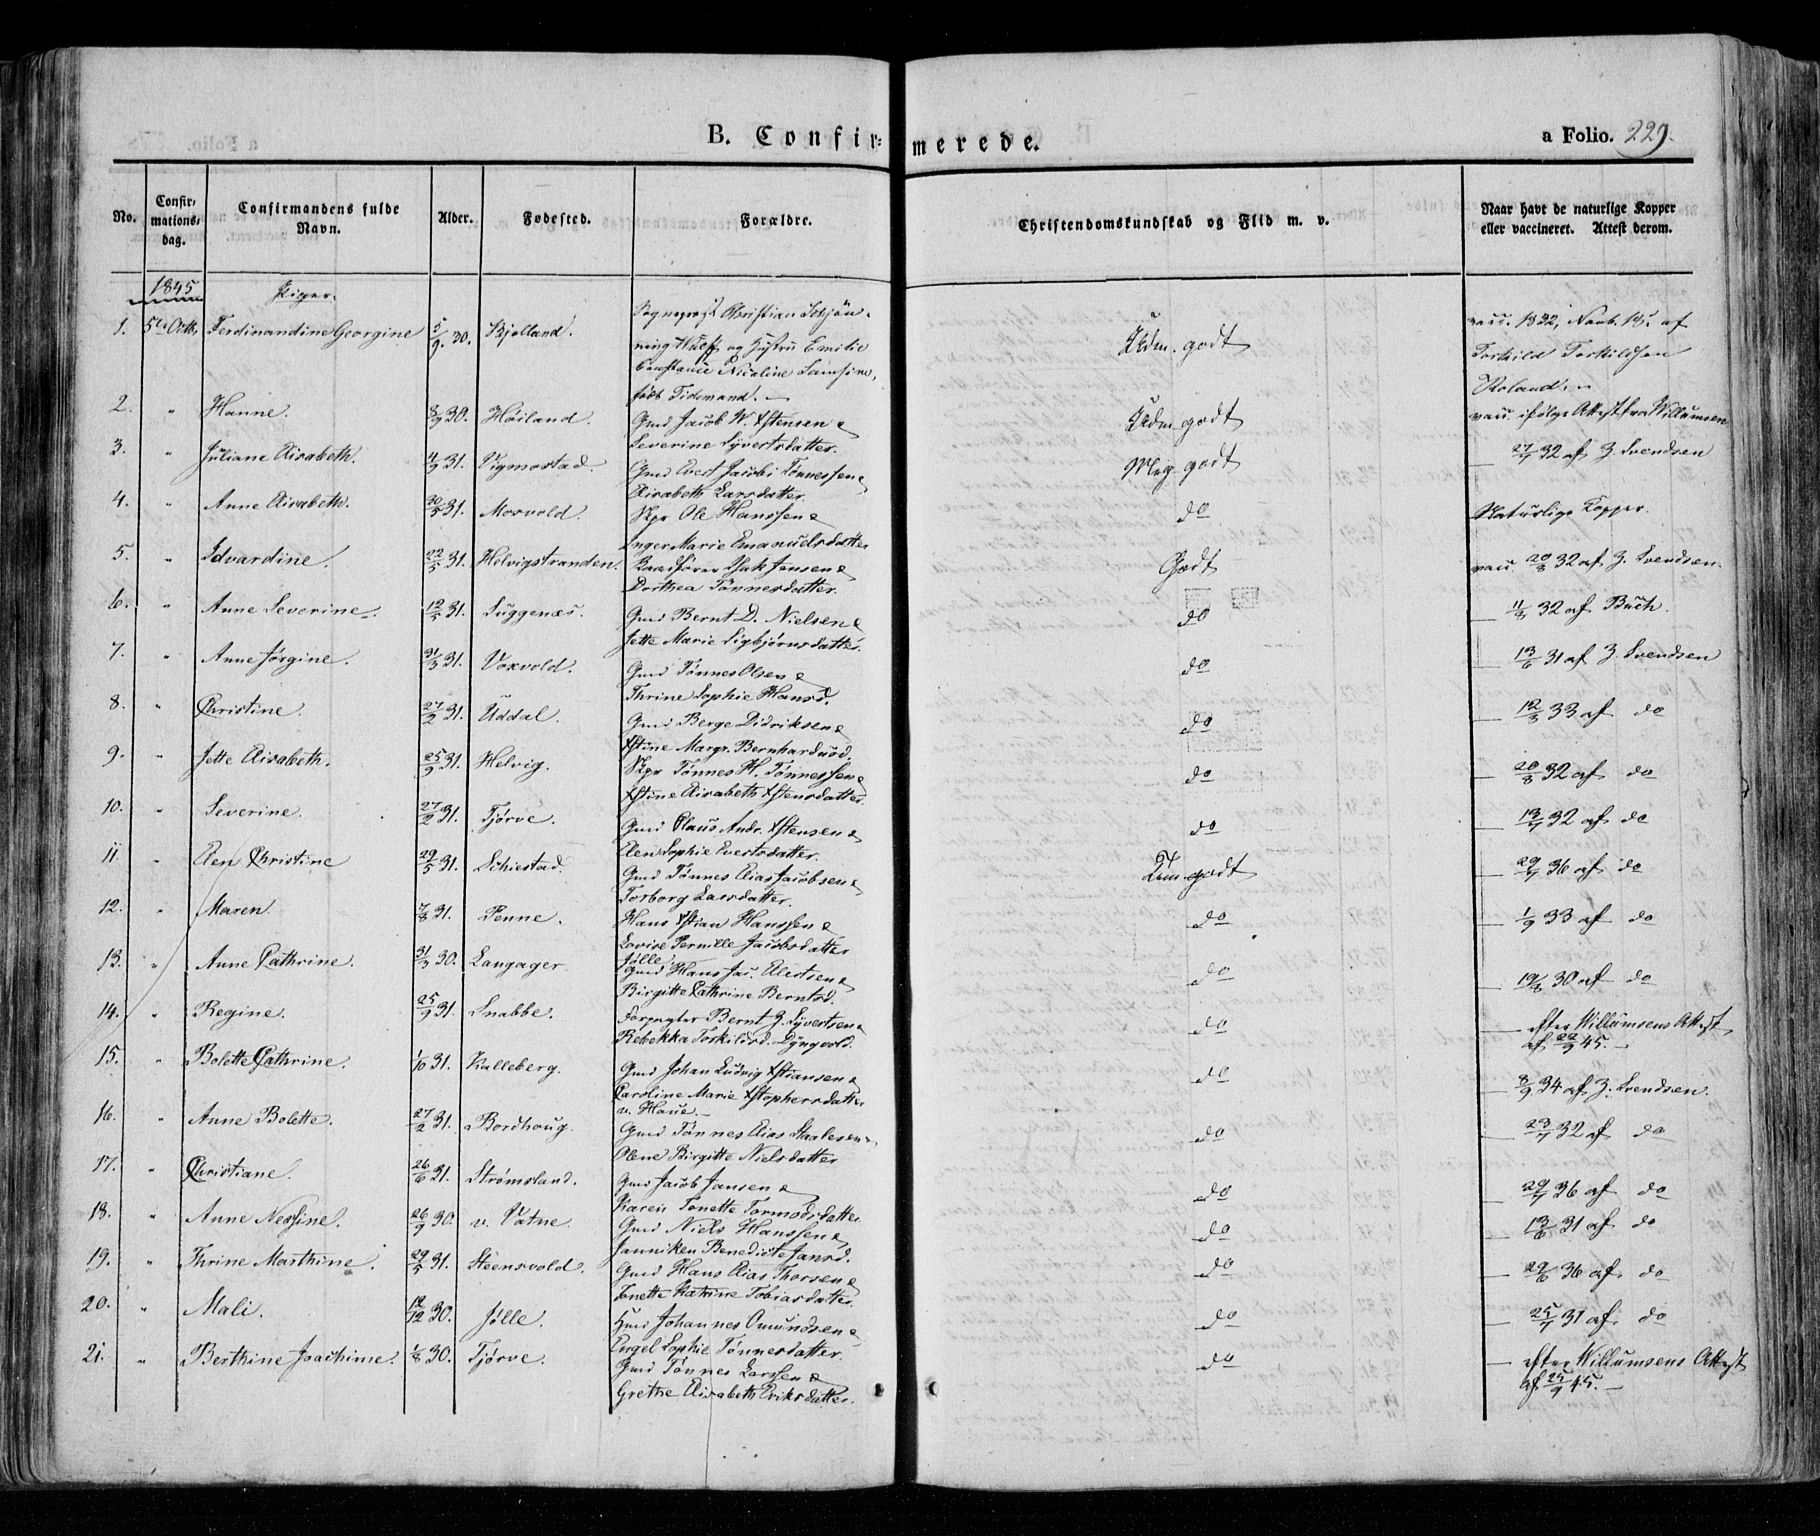 B. Confirmerede.
a Folio. 229.
No. Confirmationsdag. Confirmandens fulde Navn. Alder. Fødested. Forældre. Christendomskundskab og Flid m. v. Naar havt de naturlige Kopper eller vaccineret. Attest derom.
1845 Piger.
1. 5te Octb. Ferdinandine Georgine 5/9 30. Bjelland. Sogneprest Christian Schjønning Wulff og Hustru Emilie Constance Nicoline Samsine, født Tidemand. Udm. godt vacc. 1832, Novb. 15. af Torkild Torkildsen Roland.
2. " Hanne. 8/9 30. Høiland. Gmd Jacob W. Xstensen & Severine Syvertsdatter. Udm. godt vacc. ifølge Attest fra Willumsen
3. " Juliane Elisabeth. 11/9 31. Vigmostad. Gmd Evert Jacobi Tønnessen & Elisabeth Larsdatter. Meg. godt — 27/7 32 af Z. Svendsen
4. " Anne Elisabeth. 30/5 31. Mosvold. Skpr Ole Hanssen & Inger Marie Emanuelsdatter do Naturlige Kopper.
5. " Edvardine. 22/5 31. Helvigstranden. Baadfører Isak Jensen & Dorthea Tønnesdatter. Godt vacc 20/8 32 af Z. Svendsen.
6. " Anne Severine. 12/5 31. Tuggenæs. Gmd Bernt D. Nielsen & Jette Marie Sigbjørnsdatter. do — 11/3 32 af Buch.
7. " Anne Jørgine. 31/3 31. Voxvold. Gmd Tønnes Olsen & Thrine Sophie Hansd. do — 13/6 31 af Z. Svendsen
8. " Christine. 27/2 31. Uddal. Gmd Berge Didriksen & Xstine Margr. Bernhardusd. do — 12/3 33 af do
9. " Jette Elisabeth. 25/9 31. Helvig. Skpr Tønnes H. Tønnessen & Xstine Elisabeth Xstensdatter. do — 20/3 32 af do
10. " Severine. 27/2 31. Tjørve. Gmd Claus Andr. Xstensen & Elen Sophie Evertsdatter. do — 13/7 32 af do
11. " Elen Christine 29/5 31. Schiestad. Gmd Tønnes Elias Jacobsen & Torborg Larsdatter. Tem. godt — 29/7 36 af do
12. " Maren. 7/8 31. Penne. Hans Xstian Hanssen & Lovise Pernille Jacobsdatter Jølle. do — 1/9 33 af do
13. " Anne Cathrine. 31/3 30. Langager. Gmd Hans Jac. Alertsen & Birgitte Cathrine Berntsd. do — 19/8 30 af do
14. " Regine. 25/9 31. Snabbe. Forpagter Bernt Z. Syvertsen & Rebekka Torkildsd. Lyngvold. do — efter Willumsens Attest af 22/9 45. —
15. " Bolette Cathrine. 1/10 31. Kalleberg. Gmd Johan Ludvig Xstiansen & Caroline Marie Xstophersdatter v. Haue. do — 8/9 34 af Z. Svendsen.
16. " Anne Bolette. 27/2 31. Bordhoug. Gmd Tønnes Elias Staalesen & Olene Birgitte Nielsdatter do — 23/7 32 af do
17. " Christiane. 26/6 31. Strømsland. Gmd Jacob Jansen & Karen Tonette Tormodsdatter do — 29/7 36 af do
18. " Anne Nessine. 26/9 30. v. Vatne. Gmd Niels Hanssen & Janniken Benedicte Jansd. do — 13/6 31 af do
19. " Thrine Marthine. 29/5 31. Steensvold. Gmd Hans Elias Thorsen & Tonette Katrine Tobiasdatter. do — 29/6 36 af do
20. " Mali. 12/12 30. Jølle. Hmd Johannes Omundsen & Engel Sophie Tønnesdatter. do — 25/7 31 af do
21. " Berthine Joachime. 1/8 30. Tjørve. Gmd Tønnes Larssen & Grethe Elisabeth Eriksdatter. do — efter Willumsens Attest af 25/9 45. —